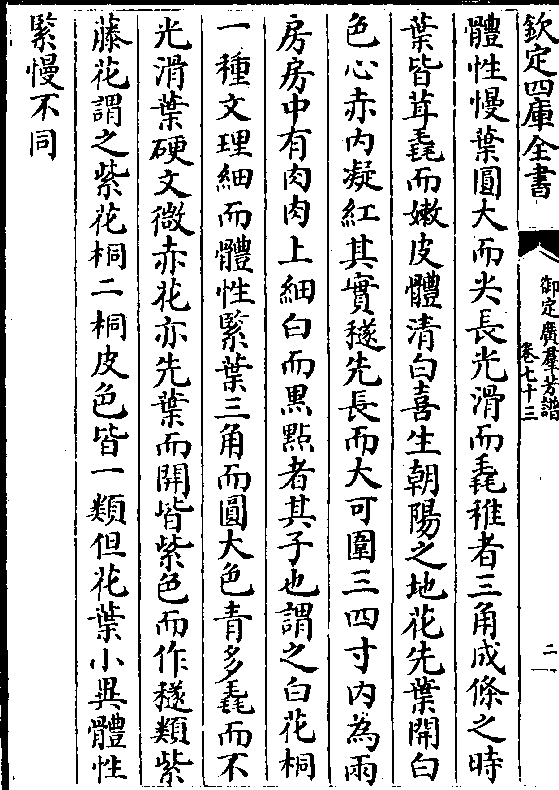 欽定四庫全書
御定廣羣芳譜
卷七十三
二
體性慢葉圓大而尖長光滑而毳稚者三角成條之時
葉皆茸毳而嫩皮體清白喜生朝陽之地花先葉開白
色心赤内凝紅其實穟先長而大可圍三四寸内為兩
房房中有肉肉上細白而黒點者其子也謂之白花桐
一種文理細而體性緊葉三角而圓大色青多毳而不
光滑葉硬文微赤花亦先葉而開皆紫色而作穟類紫
藤花謂之紫花桐二桐皮色皆一類但花葉小異體性
緊慢不同